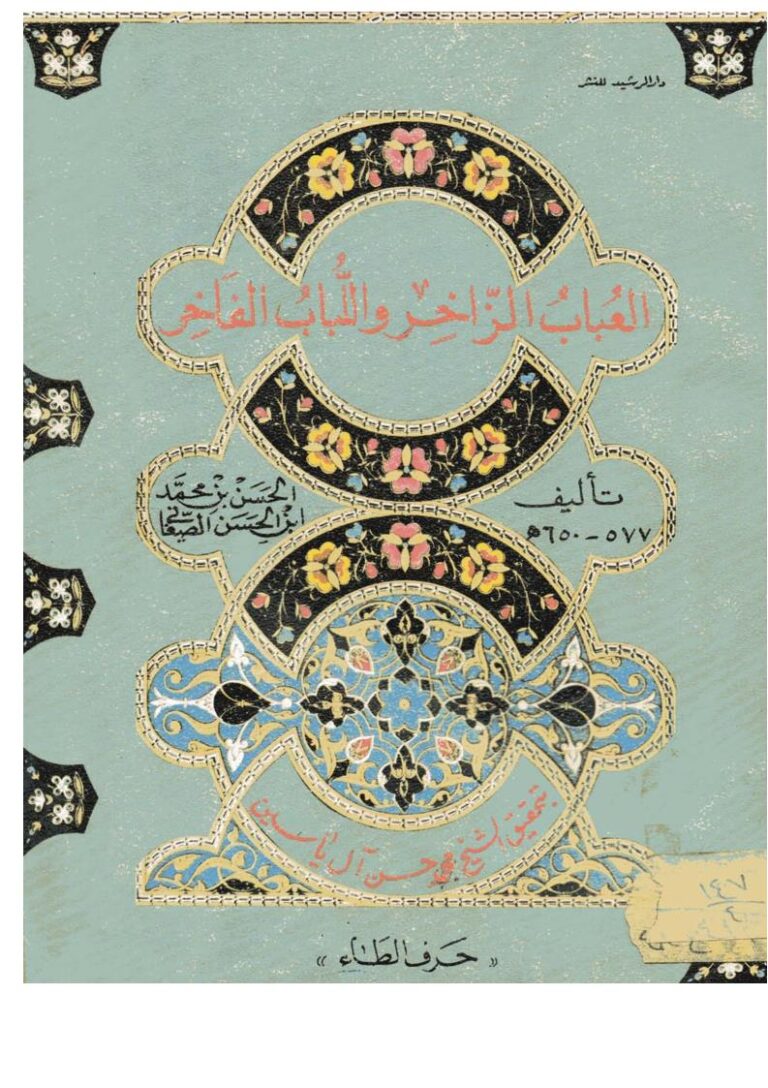 دار الرشيد للنشر
العُبابُ الزّاخِر واللُّبابُ الفَاخِر
تأليف
الحَسَن بْن محمَّد
ابن الحَسَن الصّغاني
٥٧٧ - ٦٥٠ هـ
بتحقيق الشيخ محمد حسن آل ياسين
« حَرف الطَاء »
١٤٧